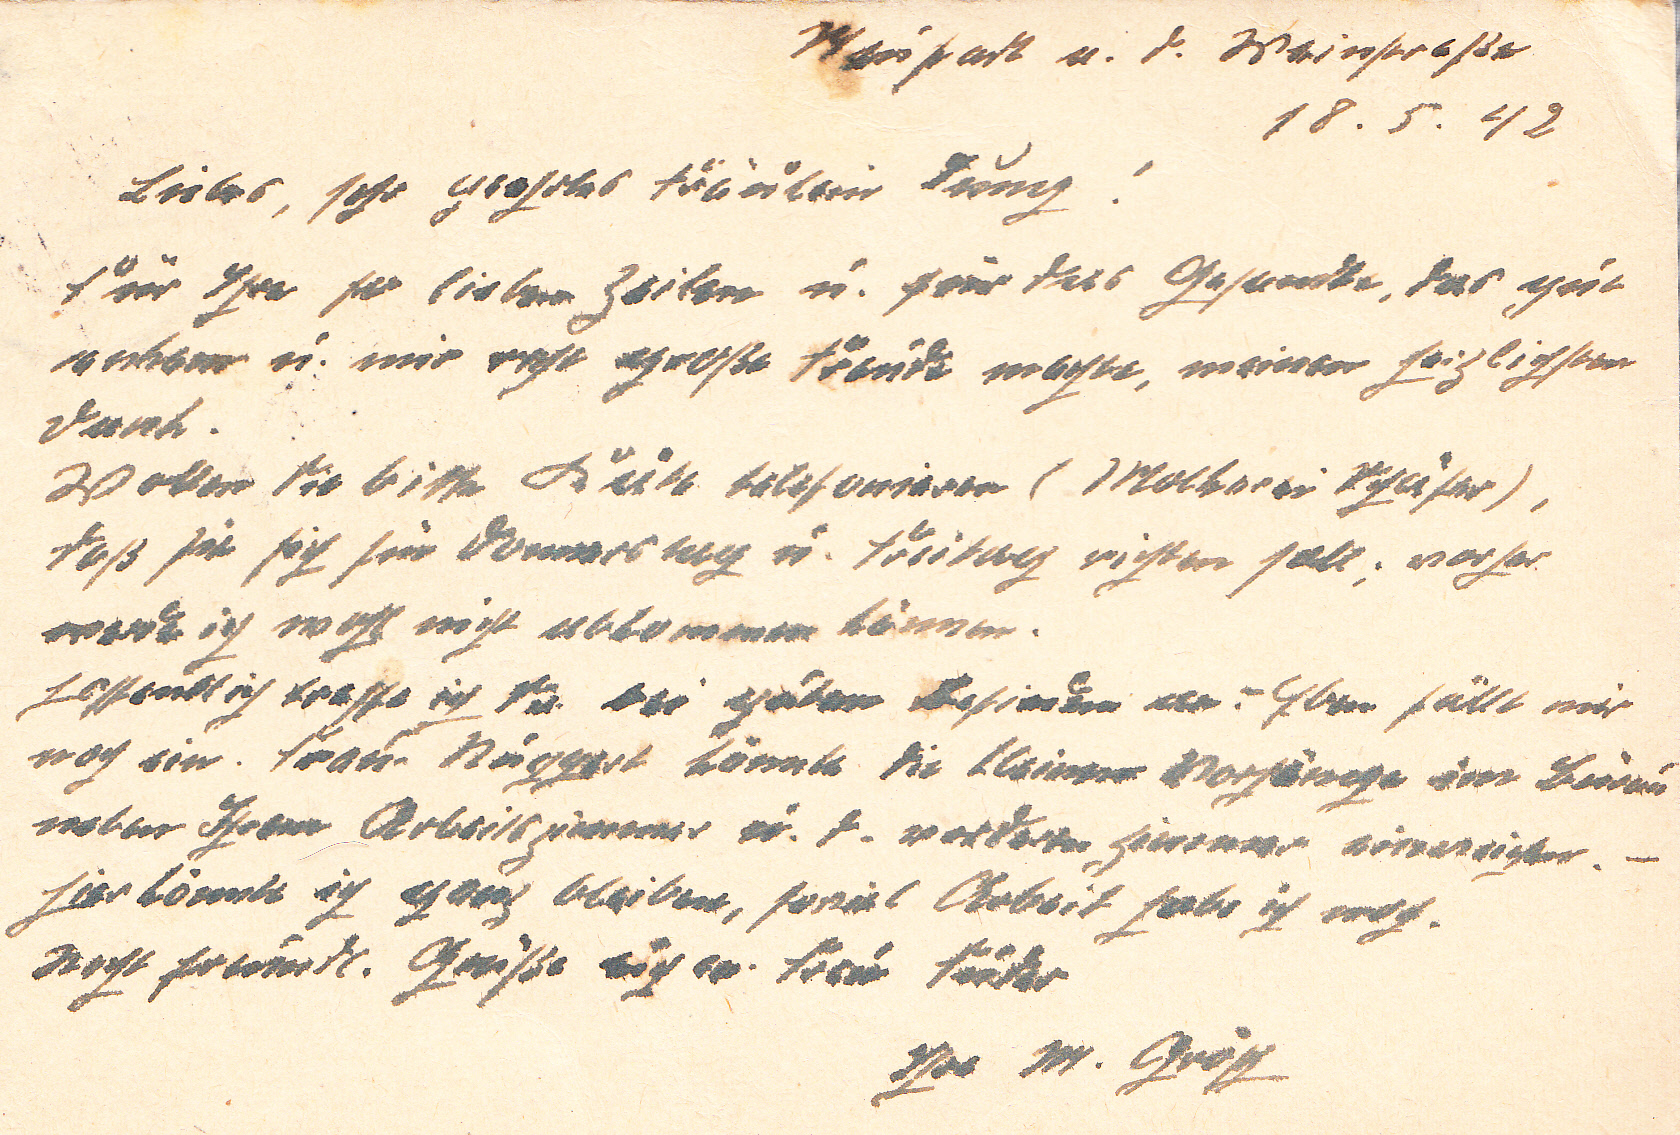 Neustadt a. d. Weinstraße
18. 5. 42
Liebes, sehr geehrtes Fräulein Jung!
Für Ihre so lieben Zeilen u. für das Gesandte, das gut
ankam u. mir recht große Freude machte, meinen herzlichsten
Dank.
Wollen Sie bitte telefonieren (Molkerei Schäfer),
daß sie sich für Donnerstag u. Freitag richten soll, vorher
werde ich wohl nicht abkommen können.
Hoffentlich treffe ich Sie bei gutem Befinden an. – Eben fällt mir
noch ein. Frau könnte die kleinen Vorhänge im Büro
neben Ihrem Arbeitszimmer u. d. vorderen Zimmer einweichen. –
Hier könnte ich ganz bleiben, soviel Arbeit habe ich noch.
Recht freundl. Grüße auch an Frau
Ihre M. Gröff